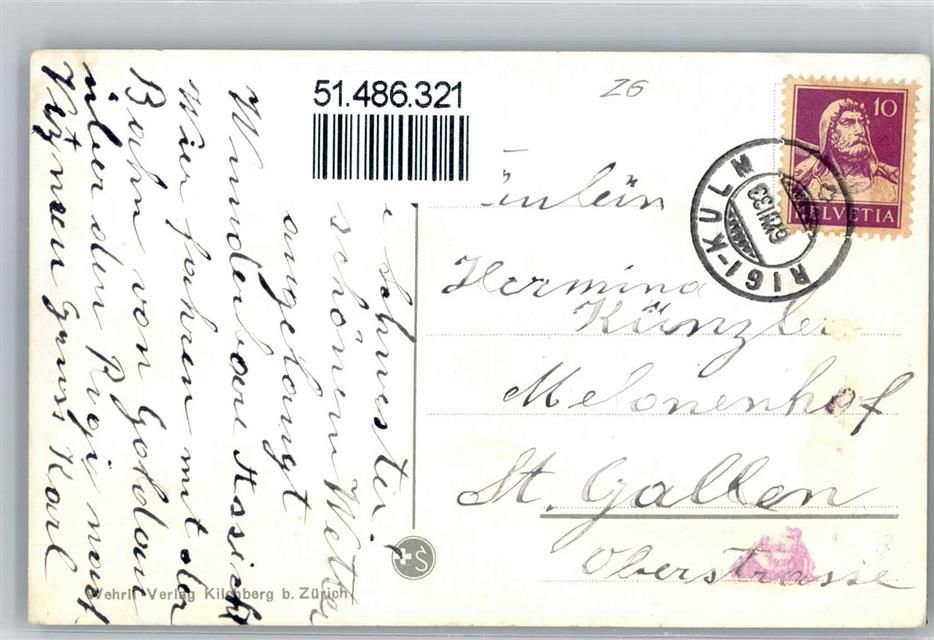 51.486.321
Z6
10
HELVETIA
RIGI-KULM
schwester,
schönem Wetter
angelangt
Wunderbare Aussicht
Wier fahren mit der
Bahn von Goldau
über den Rigi nach
Vitznau Gruss Karl
Hermina
Künzler
Melonenhof
St. Gallen
Oberstrasse
Wehrli Verlag Kilchberg b. Zürich